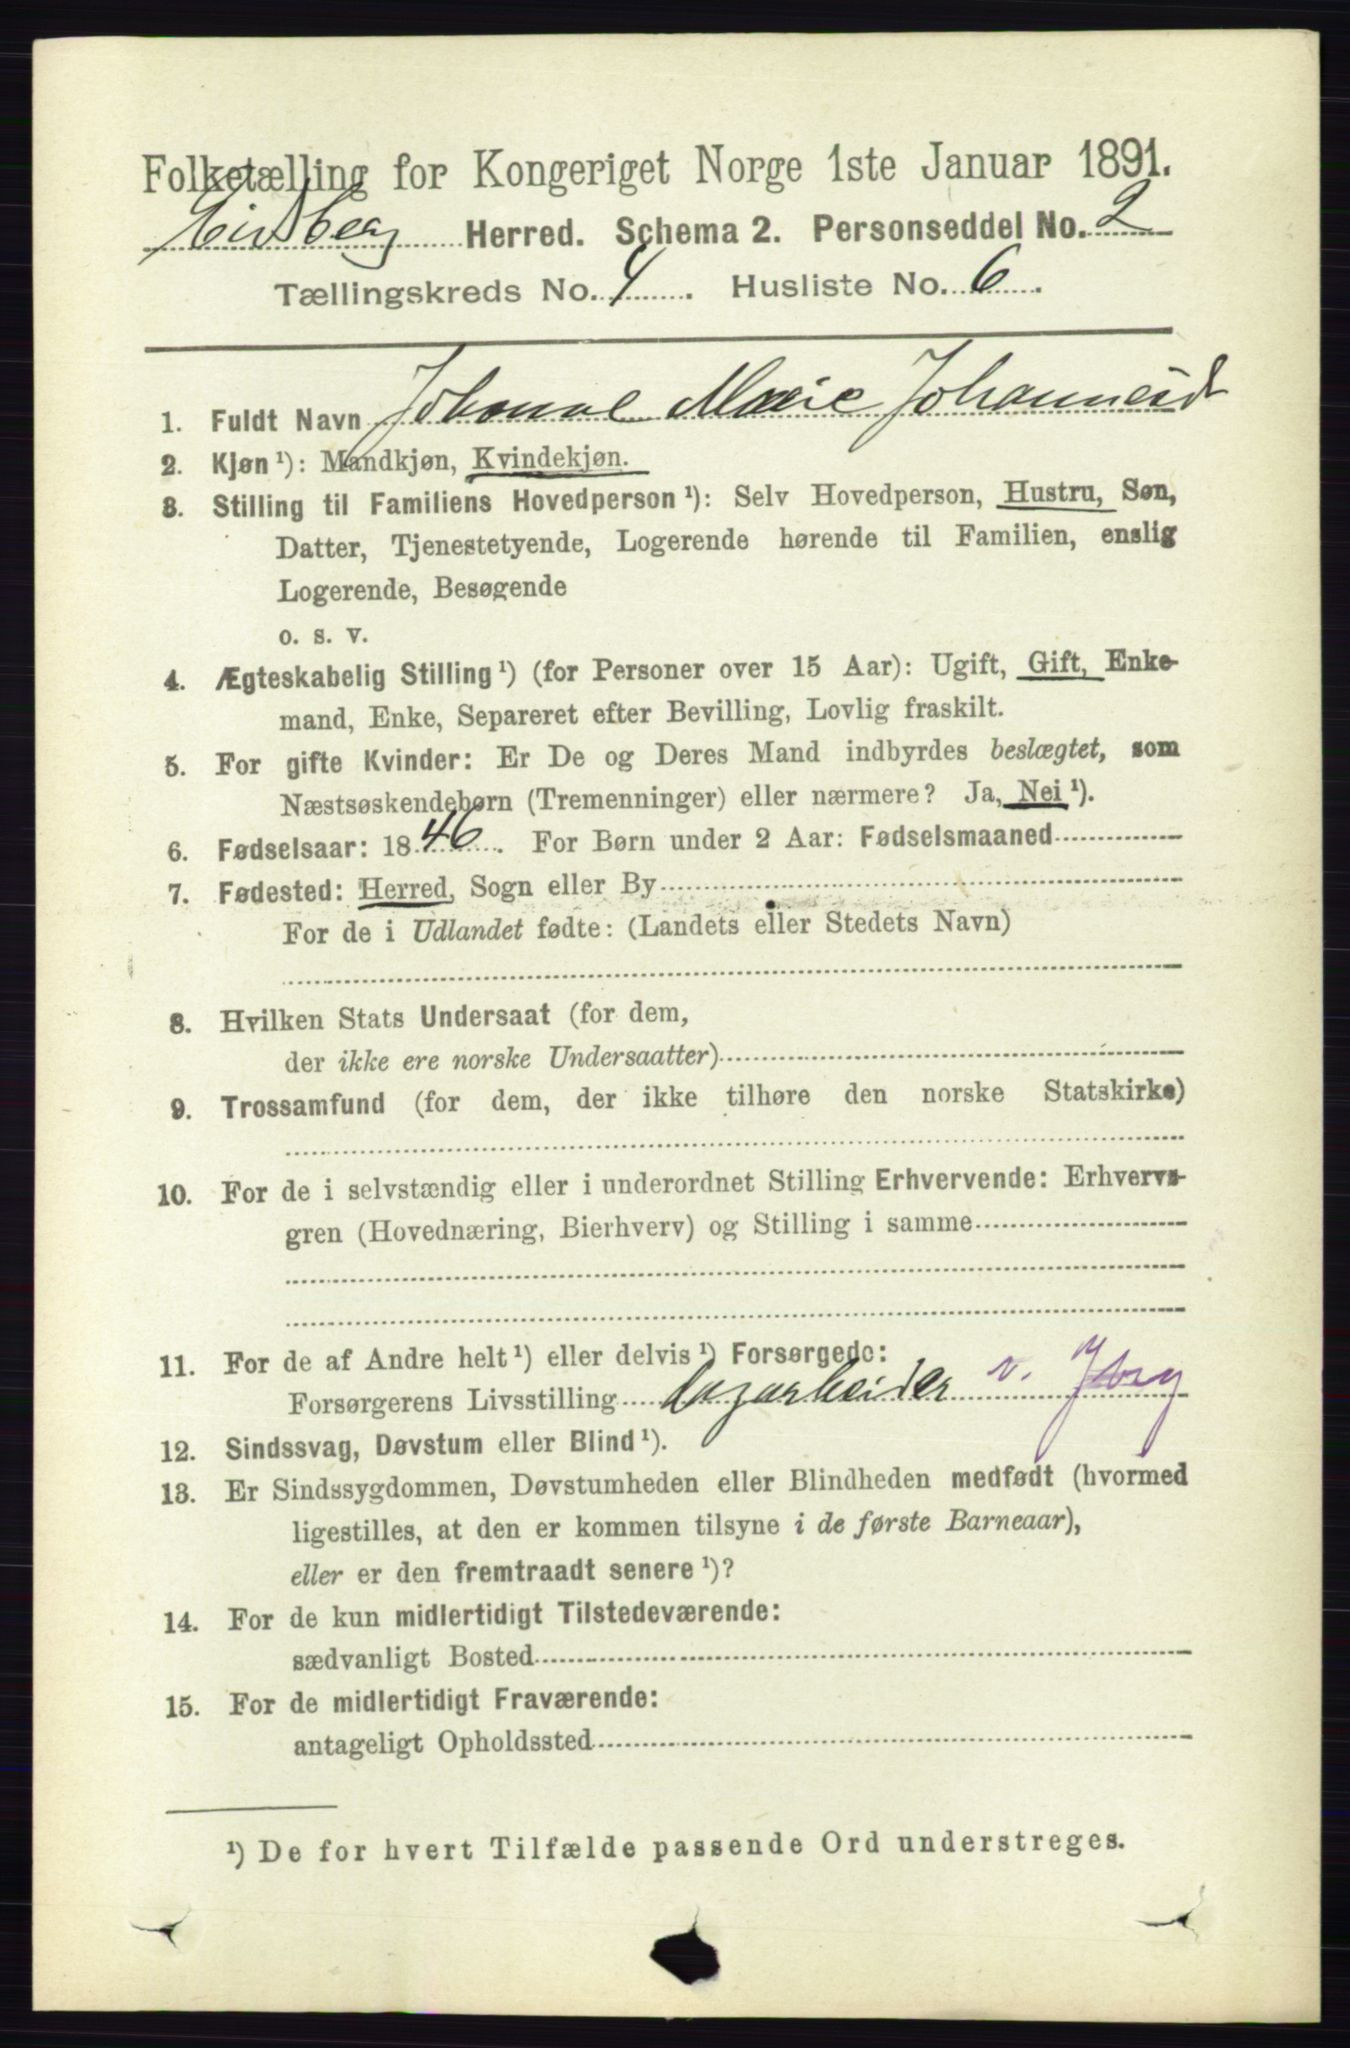 Folketælling for Kongeriget Norge 1ste Januar 1891.
Eidsberg Herred. Schema 2. Personseddel No. 2
Tællingskreds No. 4. Husliste No. 6.
1. Fuldt Navn Johanne Marie Johannesd
2. Kjøn ¹): Mandkjøn, Kvindekjøn.
3. Stilling til Familiens Hovedperson ¹): Selv Hovedperson, Hustru, Søn,
Datter, Tjenestetyende, Logerende hørende til Familien, enslig
Logerende, Besøgende
o. s. v.
4. Ægteskabelig Stilling ¹) (for Personer over 15 Aar): Ugift, Gift, Enke-
mand, Enke, Separeret efter Bevilling, Lovlig fraskilt.
5. For gifte Kvinder: Er De og Deres Mand indbyrdes beslægtet, som
Næstsøskendebørn (Tremenninger) eller nærmere? Ja, Nei ¹).
6. Fødselsaar: 1846. For Børn under 2 Aar: Fødselsmaaned
7. Fødested: Herred, Sogn eller By
For de i Udlandet fødte: (Landets eller Stedets Navn)
8. Hvilken Stats Undersaat (for dem,
der ikke ere norske Undersaatter)
9. Trossamfund (for dem, der ikke tilhøre den norske Statskirke)
10. For de i selvstændig eller i underordnet Stilling Erhvervende: Erhvervs-
gren (Hovednæring, Bierhverv) og Stilling i samme
11. For de af Andre helt ¹) eller delvis ¹) Forsørgede:
Forsørgerens Livsstilling Dagarbeider v.
12. Sindssvag, Døvstum eller Blind ¹).
13. Er Sindssygdommen, Døvstumheden eller Blindheden medfødt (hvormed
ligestilles, at den er kommen tilsyne i de første Barneaar),
eller er den fremtraadt senere ¹)?
14. For de kun midlertidigt Tilstedeværende:
sædvanligt Bosted
15. For de midlertidigt Fraværende:
antageligt Opholdssted
¹) De for hvert Tilfælde passende Ord understreges.